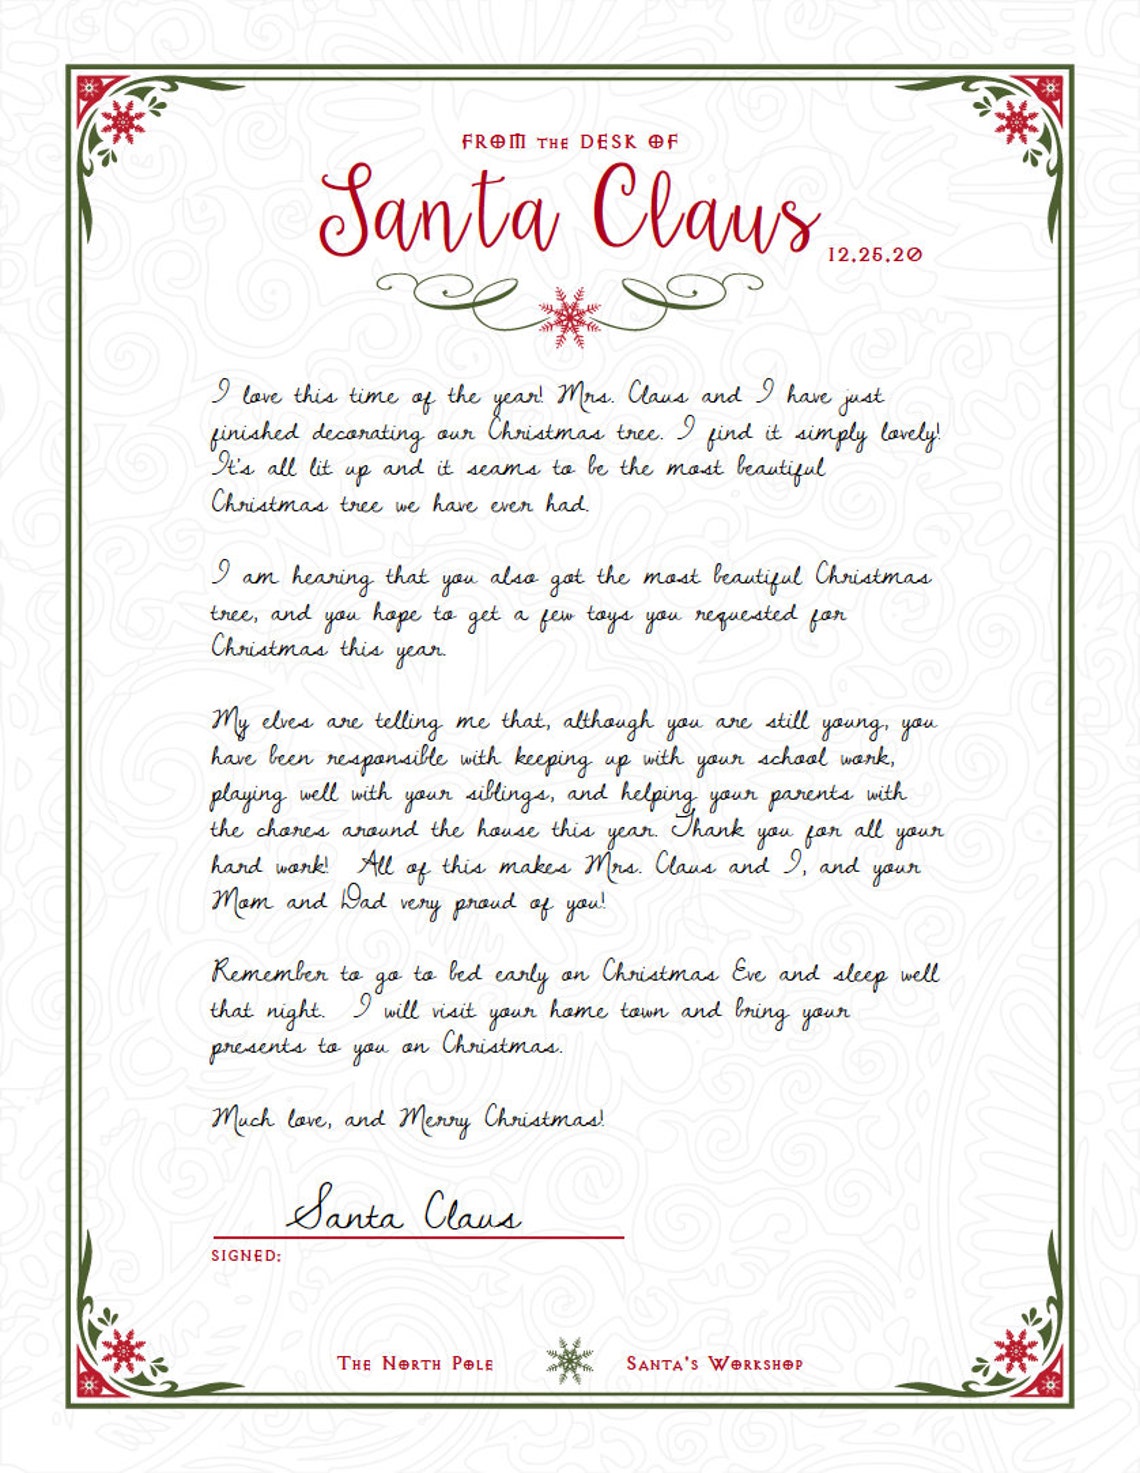 FROM THE DESK OF
Santa Claus
12.25.20
I love this time of the year! Mrs. Claus and I have just
finished decorating our Christmas tree. I find it simply lovely!
It's all lit up and it seams to be the most beautiful
Christmas tree we have ever had.
I am hearing that you also got the most beautiful Christmas
tree, and you hope to get a few toys you requested for
Christmas this year.
My elves are telling me that, although you are still young, you
have been responsible with keeping up with your school work,
playing well with your siblings, and helping your parents with
the chores around the house this year. Thank you for all your
hard work! All of this makes Mrs. Claus and I, and your
Mom and Dad very proud of you!
Remember to go to bed early on Christmas Eve and sleep well
that night. I will visit your home town and bring your
presents to you on Christmas.
Much love, and Merry Christmas!
Santa Claus
SIGNED:
THE NORTH POLE SANTA'S WORKSHOP